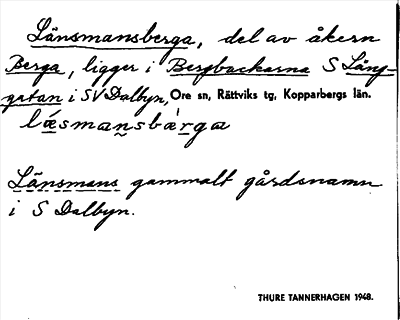 Länsmansberga, del av åkern
Berga, ligger i Bergbackarna S Lång-
gatan i SV Dalbyn, Ore sn, Rättviks tg, Kopparbergs län.
lǽsmansbæ̀rga
Länsmans gammalt gårdsnamn
i S Dalbyn.
THURE TANNERHAGEN 1948.